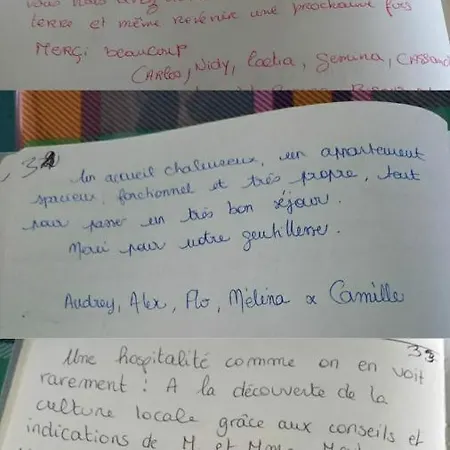 terre et même revenir une prochaine fois
MERCI beaucoup
CARLOS, Nidy,
32
Un accueil chaleureux, un appartement
spacieux, fonctionnel et très propre, tout
pour passer un très bon séjour.
Merci pour votre gentillesse.
Audrey, Alex, Flo, Mélina & Camille
33
Une hospitalité comme on en voit
rarement : A la découverte de la
culture locale grâce aux conseils et
indications de M. et Mme